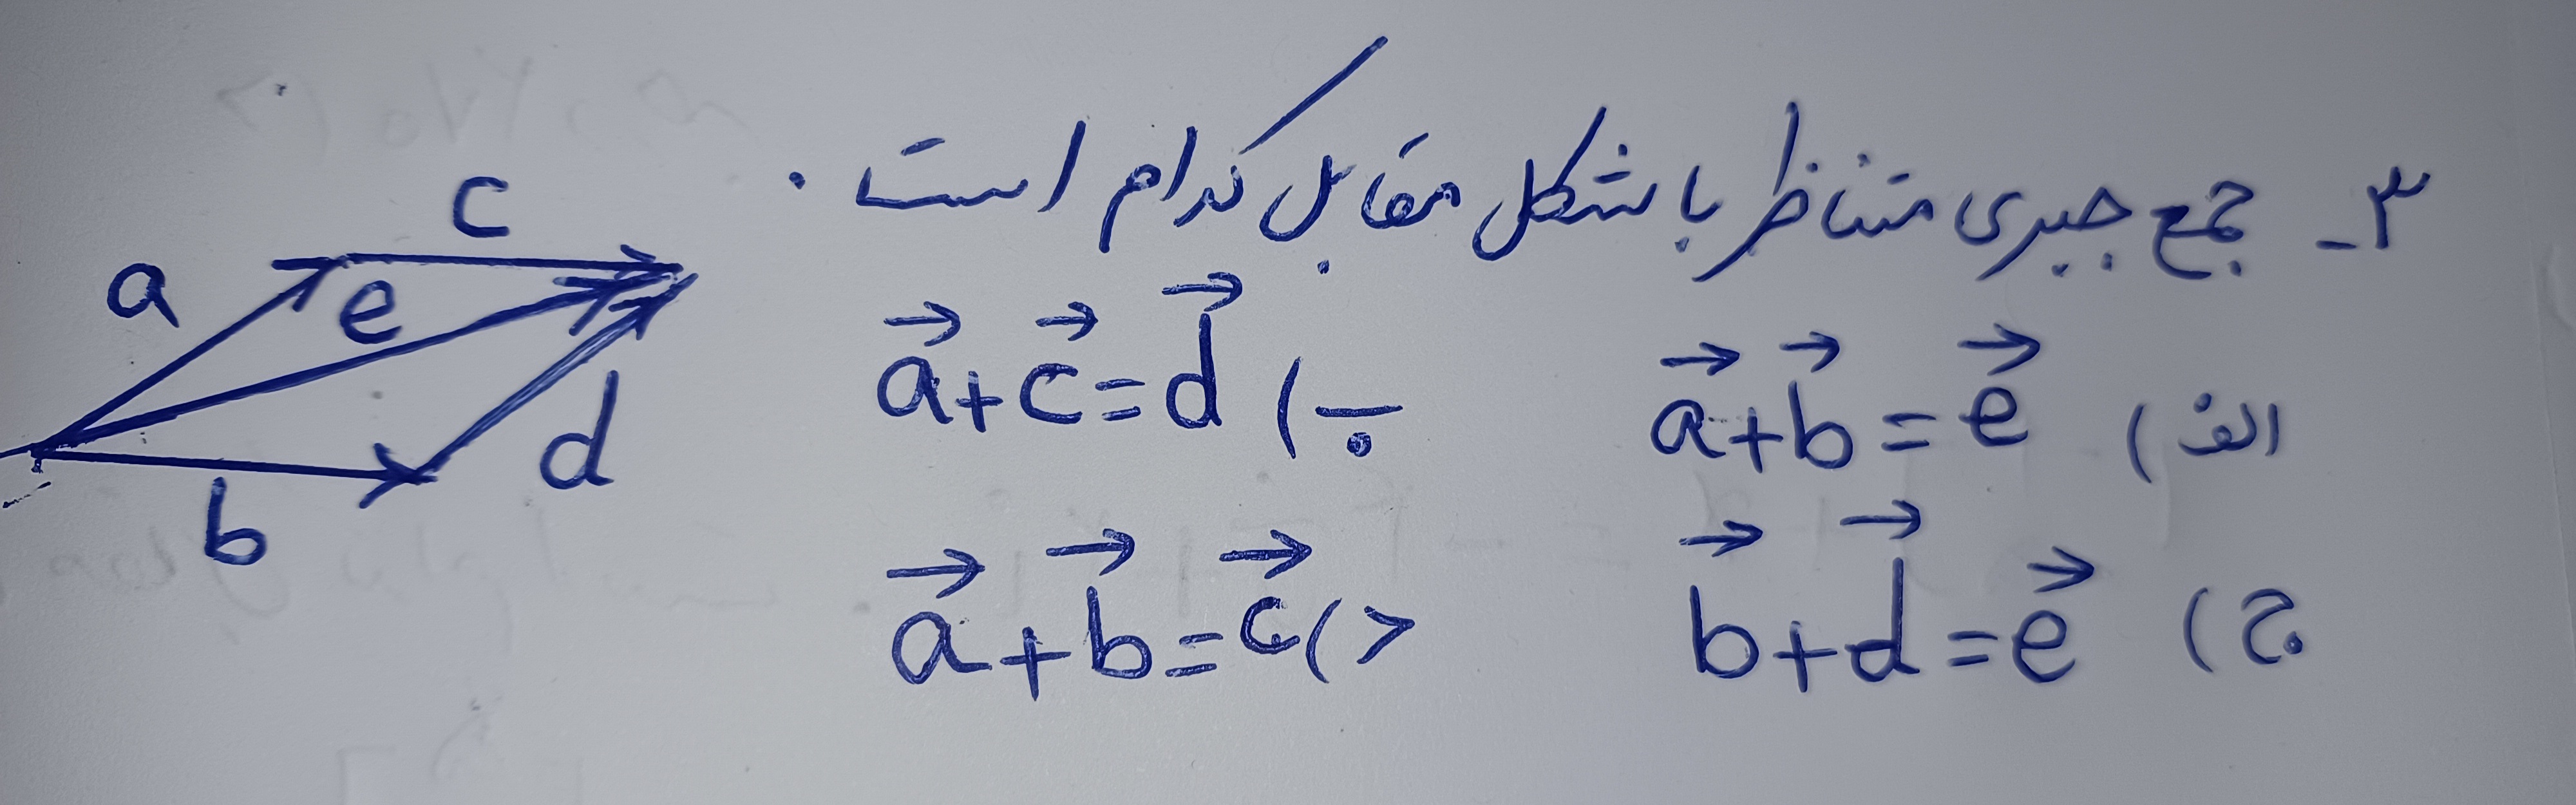 ۳- جمع جبری متناظر با شکل مقابل کدام است.
الف) a⃗+b⃗=e⃗
ب) a⃗+c⃗=d⃗
ج) b⃗+d⃗=e⃗
د) a⃗+b⃗=c⃗
c
a
e
d
b